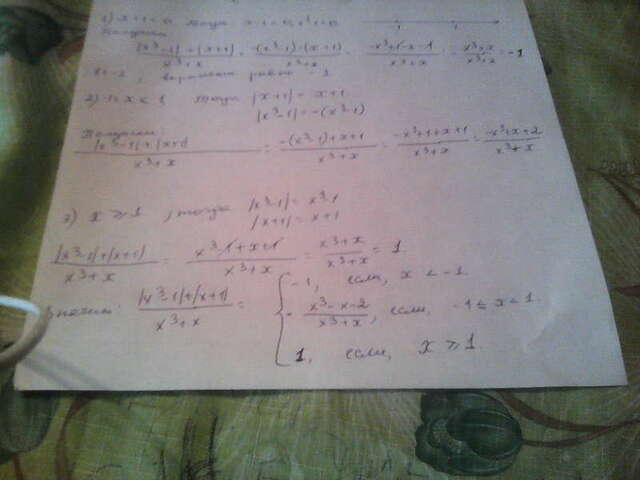 1) x + 1 < 0, тогда x - 1 < 0, x³ - 1 < 0.
Получим
|x³-1| + |x+1| / x³+x = -(x³-1) - (x+1) / x³+x = -x³+1-x-1 / x³+x = - x³+x / x³+x = -1
x < -1, выражение равно -1
2) -1 ≤ x < 1 тогда |x+1| = x+1
|x³-1| = -(x³-1)
Получим:
|x³-1| + |x+1| / x³+x = -(x³-1)+x+1 / x³+x = -x³+1+x+1 / x³+x = -x³+x+2 / x³+x
3) x ≥ 1, тогда |x³-1| = x³-1
|x+1| = x+1
|x³-1|+|x+1| / x³+x = x³-1+x+1 / x³+x = x³+x / x³+x = 1
|x³-1|+|x+1| / x³+x = { -1, если, x < -1
- x³-x-2 / x³+x, если, -1 ≤ x < 1.
1, если, x ≥ 1.